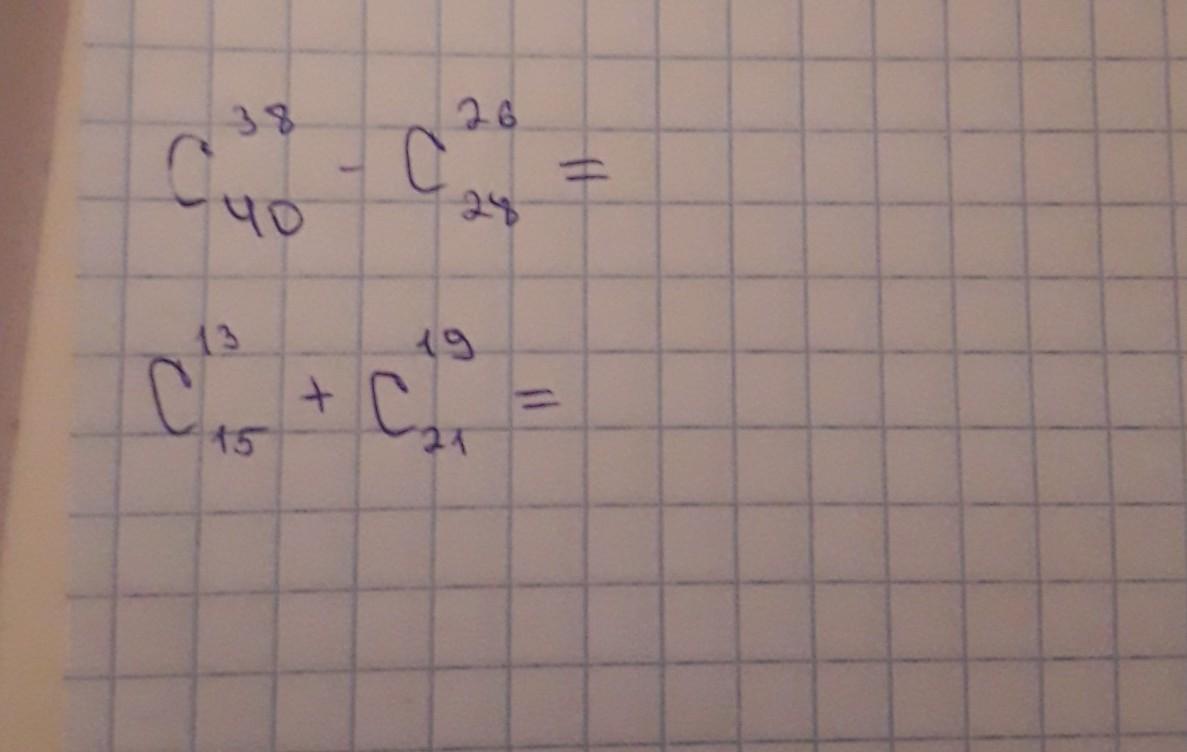 C₄₀³⁸ - C₂₈²⁶ =
C₁₅¹³ + C₂₁¹⁹ =